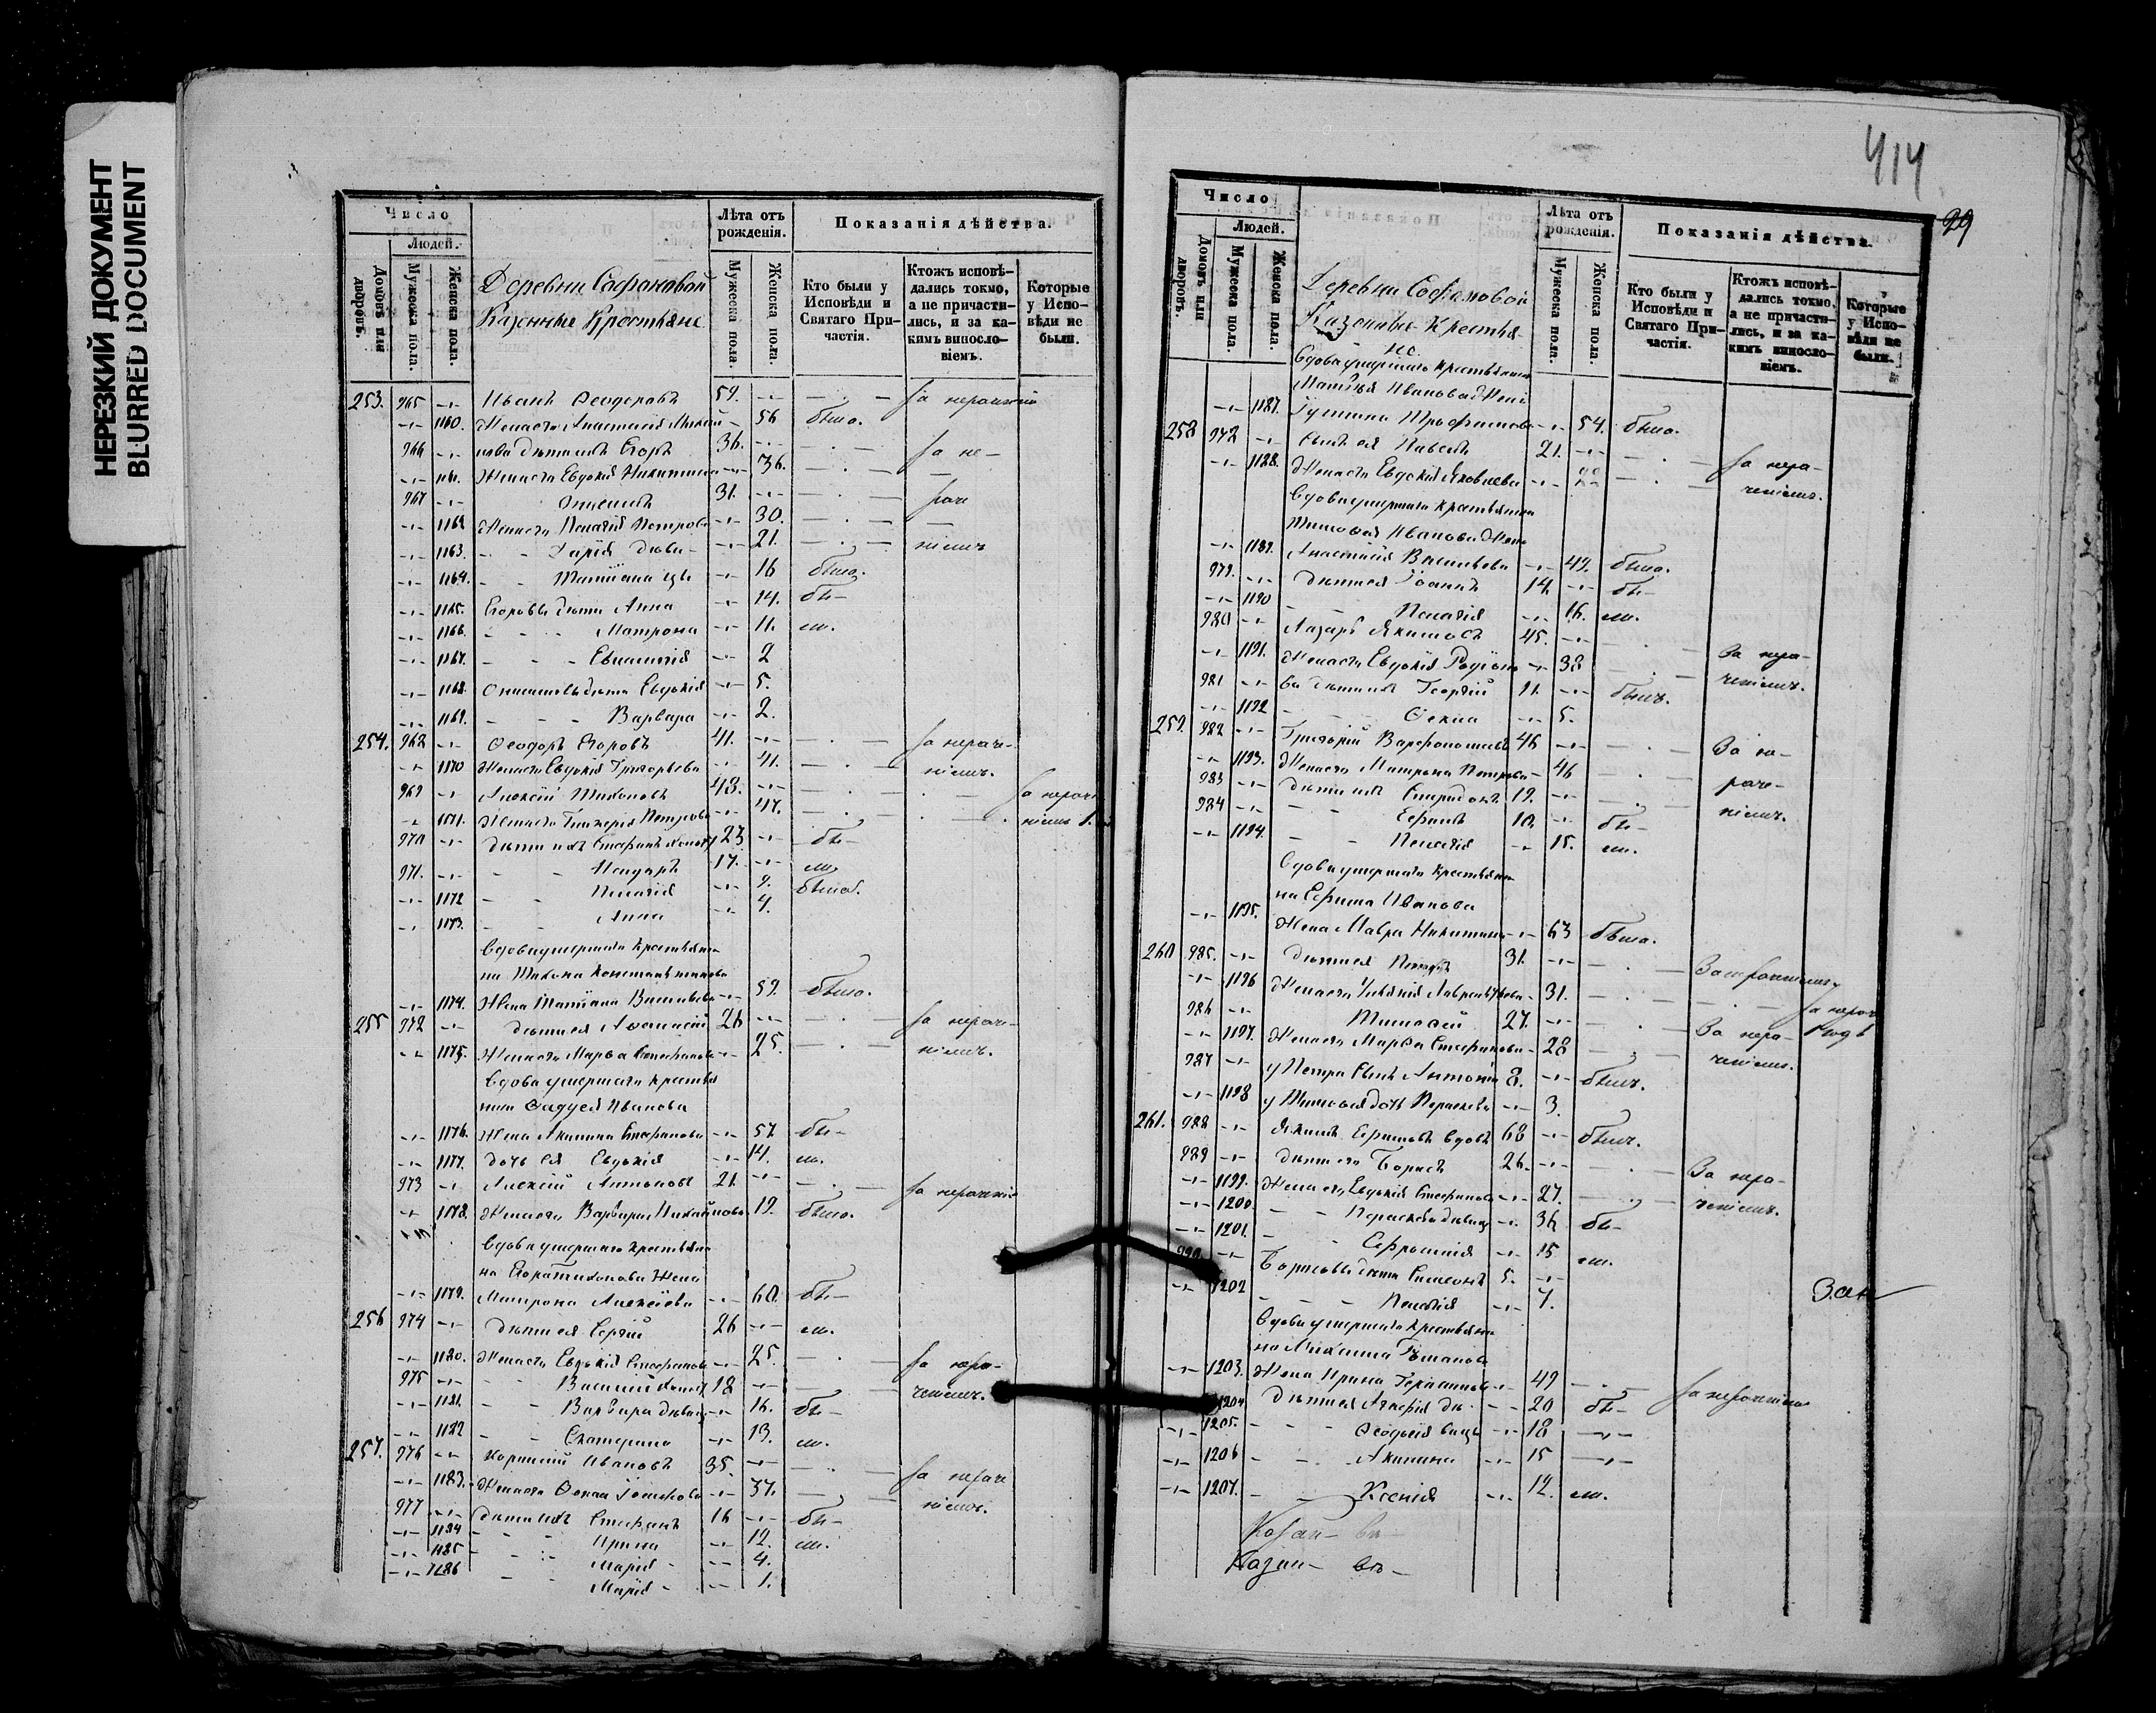 НЕРЕЗКИЙ ДОКУМЕНТ
BLURRED DOCUMENT
Число
Людей.
Домовъ или дворовъ.
Мужеска пола.
Женска пола.
Деревни Сафоновой
Казенные Крестьяне
Лѣта отъ рожденія.
Мужеска пола.
Женска пола.
Показанія дѣйства.
Кто были у Исповѣди и Святаго Причастія.
Ктожъ исповѣдались токмо, а не причастились, и за какимъ винословіемъ.
Которые у Исповѣди не были.
253. 965 Иванъ Ѳеодоровъ 59. За нерачениемъ
1160. Жена его Анастасія 56 была.
966 дѣти ихъ Егоръ 36. За не-
1161. Жена его Евдокія Никитина 36.
967 Онисимъ 31. раче
1162 Жена его Пелагія Петрова 30.
1163. Дарія дѣви- 21. ніемъ
1164. Татіана цы 16 была.
1165. Егоровы дѣти Анна 14. бы-
1166. Матрона 11. ли.
1167. Евлампія 2
1168. Онисимовы дѣти Евдокія 5.
1169. Варвара 2.
254. 968 Ѳеодоръ Егоровъ 41. За нераче-
1170 Жена его Евдокія Григорьева 41. ніемъ.
969 Алексій Тихоновъ 48. За нераче
1171. Жена его Гликерія Петрова 47. ніемъ
970 дѣти ихъ Стефанъ холостъ 23 бы-
971. 17. ли
1172 Пелагія 9. была.
1173. Анна 4.
Вдова умершаго крестьяни-
на Тихона Константинова
1174. Жена Татіана Васильева 59. была.
255 972 дѣти ея Аѳанасій 26 За нераче-
1175. Жена его Марѳа Стефанова 25. ніемъ.
Вдова умершаго крестья
нина Ѳаддея Иванова
1176. Жена Акилина Стефанова 57 бы-
1177. дочь ея Евдокія 14. ли.
973 Алексій Антоновъ 21. За нераченіе
1178. Жена его Варвара Михайлова 19. была.
Вдова умершаго крестьяни
на Егора Тихонова Жена
1179. Матрона Алексіева 60. бы-
256 974 дѣти ея Сергій 26 ли.
1180. Жена его Евдокія Стефанова 25. За нера-
975 Василій холостъ 18 ченіемъ.
1181. Варвара дѣвица 16. бы-
1182 Екатерина 13. ли.
257. 976 Корнилій Ивановъ 35. За нераче
1183. Жена его Ѳекла 37. ніемъ.
977 дѣти ихъ Стефанъ 16 бы-
1184 Ирина 12. ли.
1185 Марія 4.
1186 Марія 1.
414
29
Число
Людей.
Домовъ или дворовъ.
Мужеска пола.
Женска пола.
Деревни Сафоновой
Казенные Крестья-
не.
Лѣта отъ рожденія.
Мужеска пола.
Женска пола.
Показанія дѣйства.
Кто были у Исповѣди и Святаго Причастія.
Ктожъ исповѣдались токмо, а не причастились, и за какимъ винословіемъ.
Которые у Исповѣди не были.
Вдова умершаго крестьянина
Матѳея Иванова Жена
1187. Іустина Трофимова 54. была.
258 978 сынъ ея Павелъ 21. За нера-
1188. Жена его Евдокія Яковлева 22 ченіемъ.
Вдова умершаго крестьянина
Тимоѳея Иванова Жена
1189. Анастасія Васильева 49. была.
979. дѣти ея Іоаннъ 14. бы-
1190 Пелагія 16. ли.
980 Лазарь Якимовъ 45. За нера-
1191. Жена его Евдокія Родіоно 38 ченіемъ.
981 ва дѣти ихъ Георгій 11. былъ.
1192 Ѳекла 5.
259. 982 Григорій Варѳоломеевъ 46 За не-
1193. Жена его Матрона Петрова 46 раче-
983 дѣти ихъ Спиридонъ 19. ніемъ.
984 Ефимъ 10. бы-
1194. Пелагія 15. ли.
Вдова умершаго крестьяни
на Ефима Иванова
1195. Жена Мавра Никитина 63 была.
260 985. дѣти ея Петръ 31. За нераченіемъ
1196 Жена его Уліянія Лаврентьева 31. За нерач
986 Тимоѳей 27. За нера- 1 годъ
1197. Жена его Марѳа Стефанова 28 ченіемъ.
987 у Петра сынъ Антоній 8. былъ.
1198 у Тимоѳея дочь Параскева 3.
261. 988 Якимъ Ефимовъ вдовъ 68 былъ.
989 дѣти его Борисъ 26. За нера-
1199. Жена его Евдокія Стефанова 27. ченіемъ.
1200 Параскева дѣвица 36 бы-
1201. Ефросинія 15 ли.
990. Борисовы дѣти Симеонъ 5.
1202 Пелагія 7.
Вдова умершаго крестьяни
на Михаила Романова
1203. Жена Ирина Герасимова 49 За нераченіемъ
1204 дѣти ея Агафія дѣ- 20 бы-
1205. Ѳеодосія вицы 18
1206 Акилина 15
1207. Ксенія 12. ли.
Казан- въ-
Казан- въ-